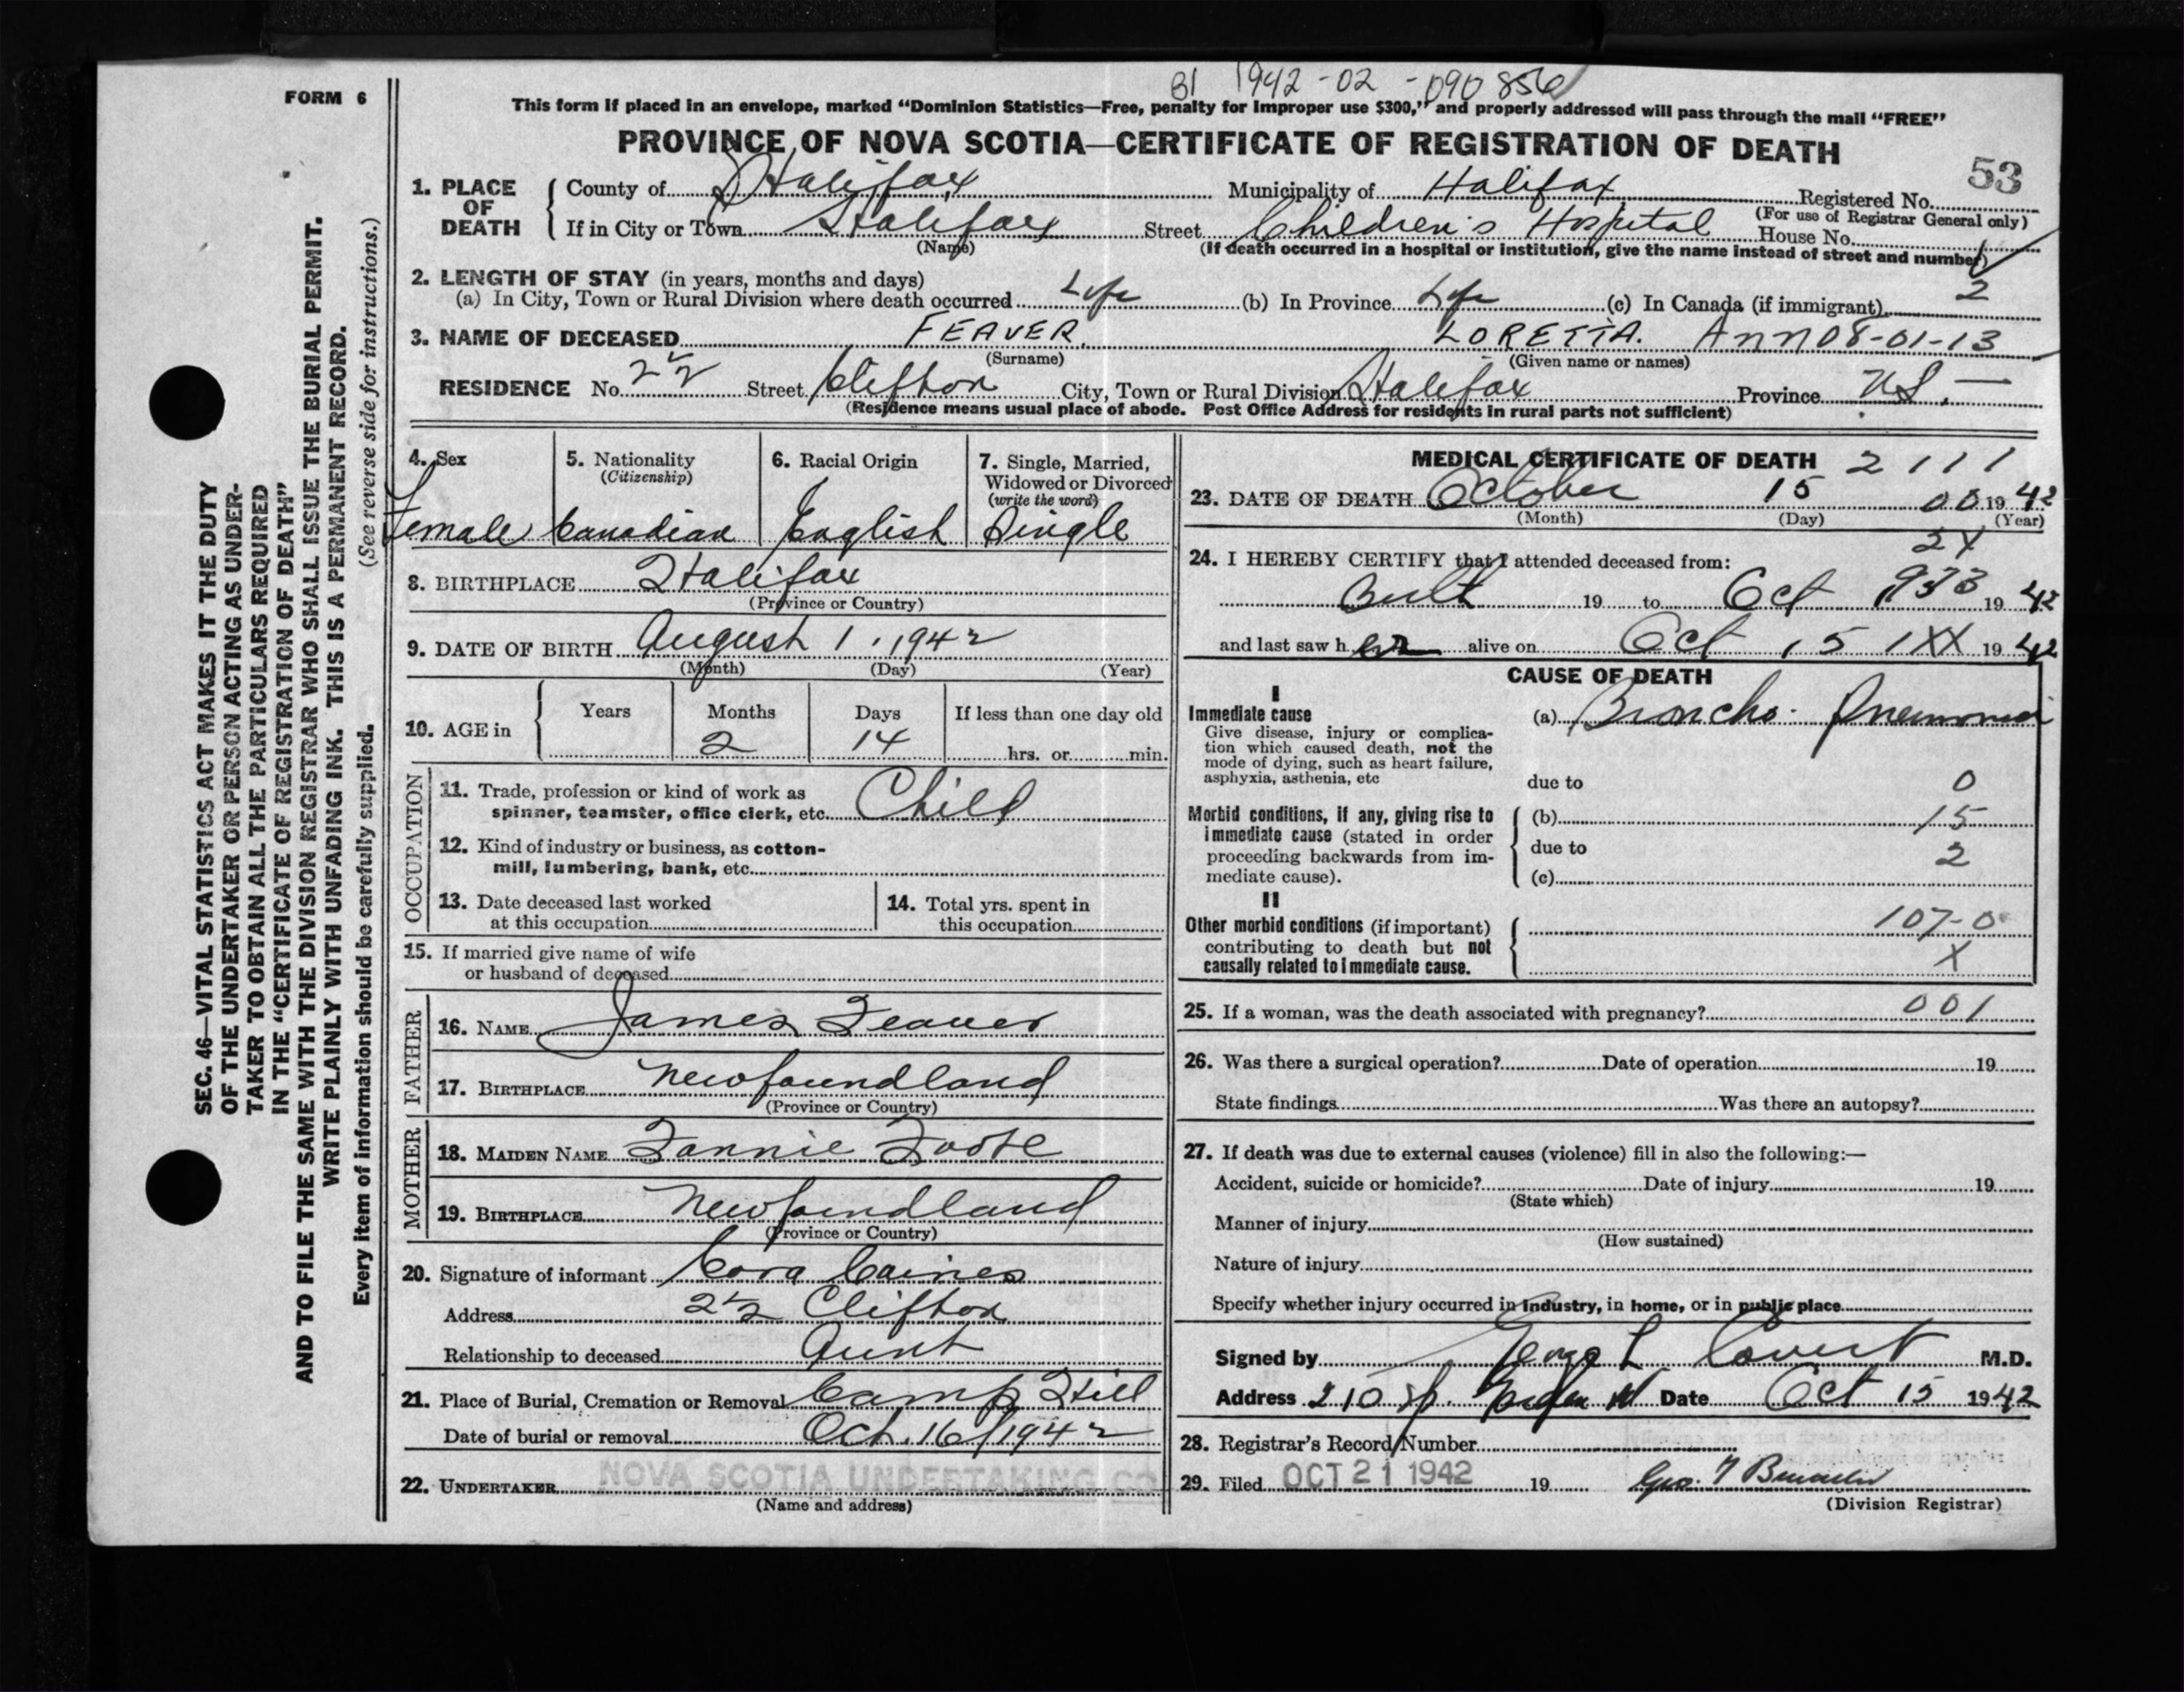 BI 1942-02-090856
FORM 6
This form if placed in an envelope, marked “Dominion Statistics—Free, penalty for improper use $300,” and properly addressed will pass through the mail “FREE”
PROVINCE OF NOVA SCOTIA—CERTIFICATE OF REGISTRATION OF DEATH
53
1. PLACE OF DEATH County of Halifax Municipality of Halifax Registered No.
(For use of Registrar General only)
If in City or Town Halifax Street Children's Hospital House No.
(Name) (If death occurred in a hospital or institution, give the name instead of street and number)
2. LENGTH OF STAY (in years, months and days)
2
(a) In City, Town or Rural Division where death occurred Life (b) In Province Life (c) In Canada (if immigrant)
3. NAME OF DECEASED FEAVER. LORETTA. Ann 08-01-13
(Surname) (Given name or names)
RESIDENCE No. Street Clifton City, Town or Rural Division Halifax Province N.S.
(Residence means usual place of abode. Post Office Address for residents in rural parts not sufficient)
4. Sex 5. Nationality 6. Racial Origin 7. Single, Married,
(Citizenship) Widowed or Divorced
(write the word)
Female Canadian English Single
8. BIRTHPLACE Halifax
(Province or Country)
9. DATE OF BIRTH August 1, 1942
(Month) (Day) (Year)
10. AGE in Years Months Days If less than one day old
2 14 hrs. or min.
OCCUPATION
11. Trade, profession or kind of work as
spinner, teamster, office clerk, etc. Child
12. Kind of industry or business, as cotton-
mill, lumbering, bank, etc.
13. Date deceased last worked 14. Total yrs. spent in
at this occupation this occupation
15. If married give name of wife
or husband of deceased
FATHER
16. NAME James Feaver
17. BIRTHPLACE Newfoundland
(Province or Country)
MOTHER
18. MAIDEN NAME Fannie Foote
19. BIRTHPLACE Newfoundland
(Province or Country)
20. Signature of informant Cora Caines
Address Clifton
Relationship to deceased Aunt
21. Place of Burial, Cremation or Removal Camp Hill
Date of burial or removal Oct. 16/1942
22. UNDERTAKER NOVA SCOTIA UNDERTAKING CO
(Name and address)
MEDICAL CERTIFICATE OF DEATH 2111
23. DATE OF DEATH October 15 00 1942
(Month) (Day) (Year)
2X
24. I HEREBY CERTIFY that I attended deceased from:
19 to Oct 933 1942
and last saw her alive on Oct 15 1XX 1942
CAUSE OF DEATH
I
Immediate cause (a) Broncho-Pneumonia
Give disease, injury or complica-
tion which caused death, not the
mode of dying, such as heart failure,
asphyxia, asthenia, etc due to 0
Morbid conditions, if any, giving rise to (b) 15
immediate cause (stated in order
proceeding backwards from im- due to 2
mediate cause). (c)
II
Other morbid conditions (if important) 107-0
contributing to death but not
causally related to immediate cause. X
25. If a woman, was the death associated with pregnancy? 001
26. Was there a surgical operation? Date of operation 19
State findings Was there an autopsy?
27. If death was due to external causes (violence) fill in also the following:—
Accident, suicide or homicide? Date of injury 19
(State which)
Manner of injury
(How sustained)
Nature of injury
Specify whether injury occurred in industry, in home, or in public place
Signed by L Covert M.D.
Address 210 Date Oct 15 1942
28. Registrar's Record Number
29. Filed OCT 21 1942 19 Geo.
(Division Registrar)
SEC. 46—VITAL STATISTICS ACT MAKES IT THE DUTY
OF THE UNDERTAKER OR PERSON ACTING AS UNDER-
TAKER TO OBTAIN ALL THE PARTICULARS REQUIRED
IN THE “CERTIFICATE OF REGISTRATION OF DEATH”
AND TO FILE THE SAME WITH THE DIVISION REGISTRAR WHO SHALL ISSUE THE BURIAL PERMIT.
WRITE PLAINLY WITH UNFADING INK. THIS IS A PERMANENT RECORD.
Every item of information should be carefully supplied. (See reverse side for instructions.)